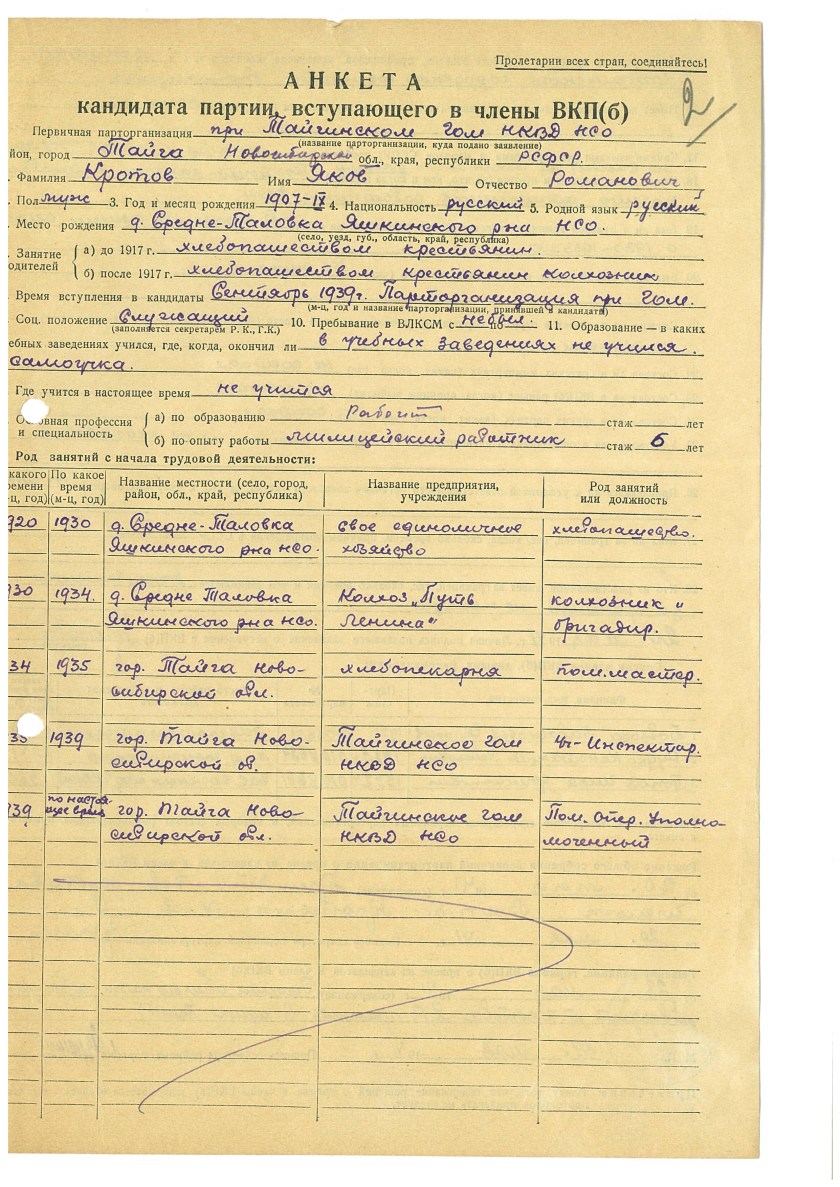 Пролетарии всех стран, соединяйтесь!
2/
АНКЕТА
кандидата партии, вступающего в члены ВКП(б)
Первичная парторганизация при Тайгинском ГОМ НКВД НСО
(название парторганизации, куда подано заявление)
йон, город Тайга Новосибирской обл., края, республики РСФСР.
. Фамилия Кротов Имя Яков Отчество Романович
. Пол муж 3. Год и месяц рождения 1907-IX 4. Национальность русский 5. Родной язык русский
. Место рождения д. Средне-Таловка Яшкинского р-на НСО.
(село, уезд, губ., область, край, республика)
. Занятие одителей
а) до 1917 г. хлебопашеством крестьянин.
б) после 1917 г. хлебопашеством крестьянин колхозник
. Время вступления в кандидаты Сентябрь 1939 г. Парторганизация при ГОМ.
(м-ц, год и название парторганизации, принявшей в кандидаты)
. Соц. положение Служащий 10. Пребывание в ВЛКСМ с не был. 11. Образование — в каких
(заполняется секретарем Р. К., Г. К.)
ебных заведениях учился, где, когда, окончил ли в учебных заведениях не учился.
самоучка.
. Где учится в настоящее время не учится
. Основная профессия и специальность
а) по образованию стаж лет
б) по опыту работы милицейский работник стаж 6 лет
. Род занятий с начала трудовой деятельности:
какого ремени -ц, год) По какое время (м-ц, год) Название местности (село, город, район, обл., край, республика) Название предприятия, учреждения Род занятий или должность
920 1930 д. Средне-Таловка свое единоличное хлебопашество.
Яшкинского р-на НСО. хозяйство
930 1934. д. Средне Таловка Колхоз „Путь колхозник и
Яшкинского р-на НСО. Ленина" бригадир.
34 1935 гор. Тайга Ново- хлебопекарня пом. мастер.
сибирской обл.
35 1939 гор. Тайга Ново- Тайгинское ГОМ Уч-Инспектор.
сибирской об. НКВД НСО
939 по настоящее время гор. Тайга Ново- Тайгинское ГОМ Пом. Опер. Уполно-
сибирской обл. НКВД НСО моченный